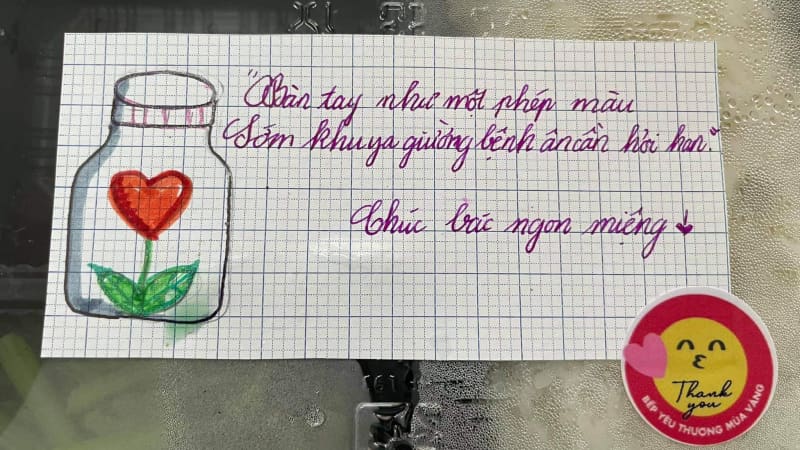 "Bàn tay như một phép màu
Sớm khuya giường bệnh ân cần hỏi han."
Chúc bác ngon miệng ↓
Thank
you
BẾP YÊU THƯƠNG MÙA VÀNG